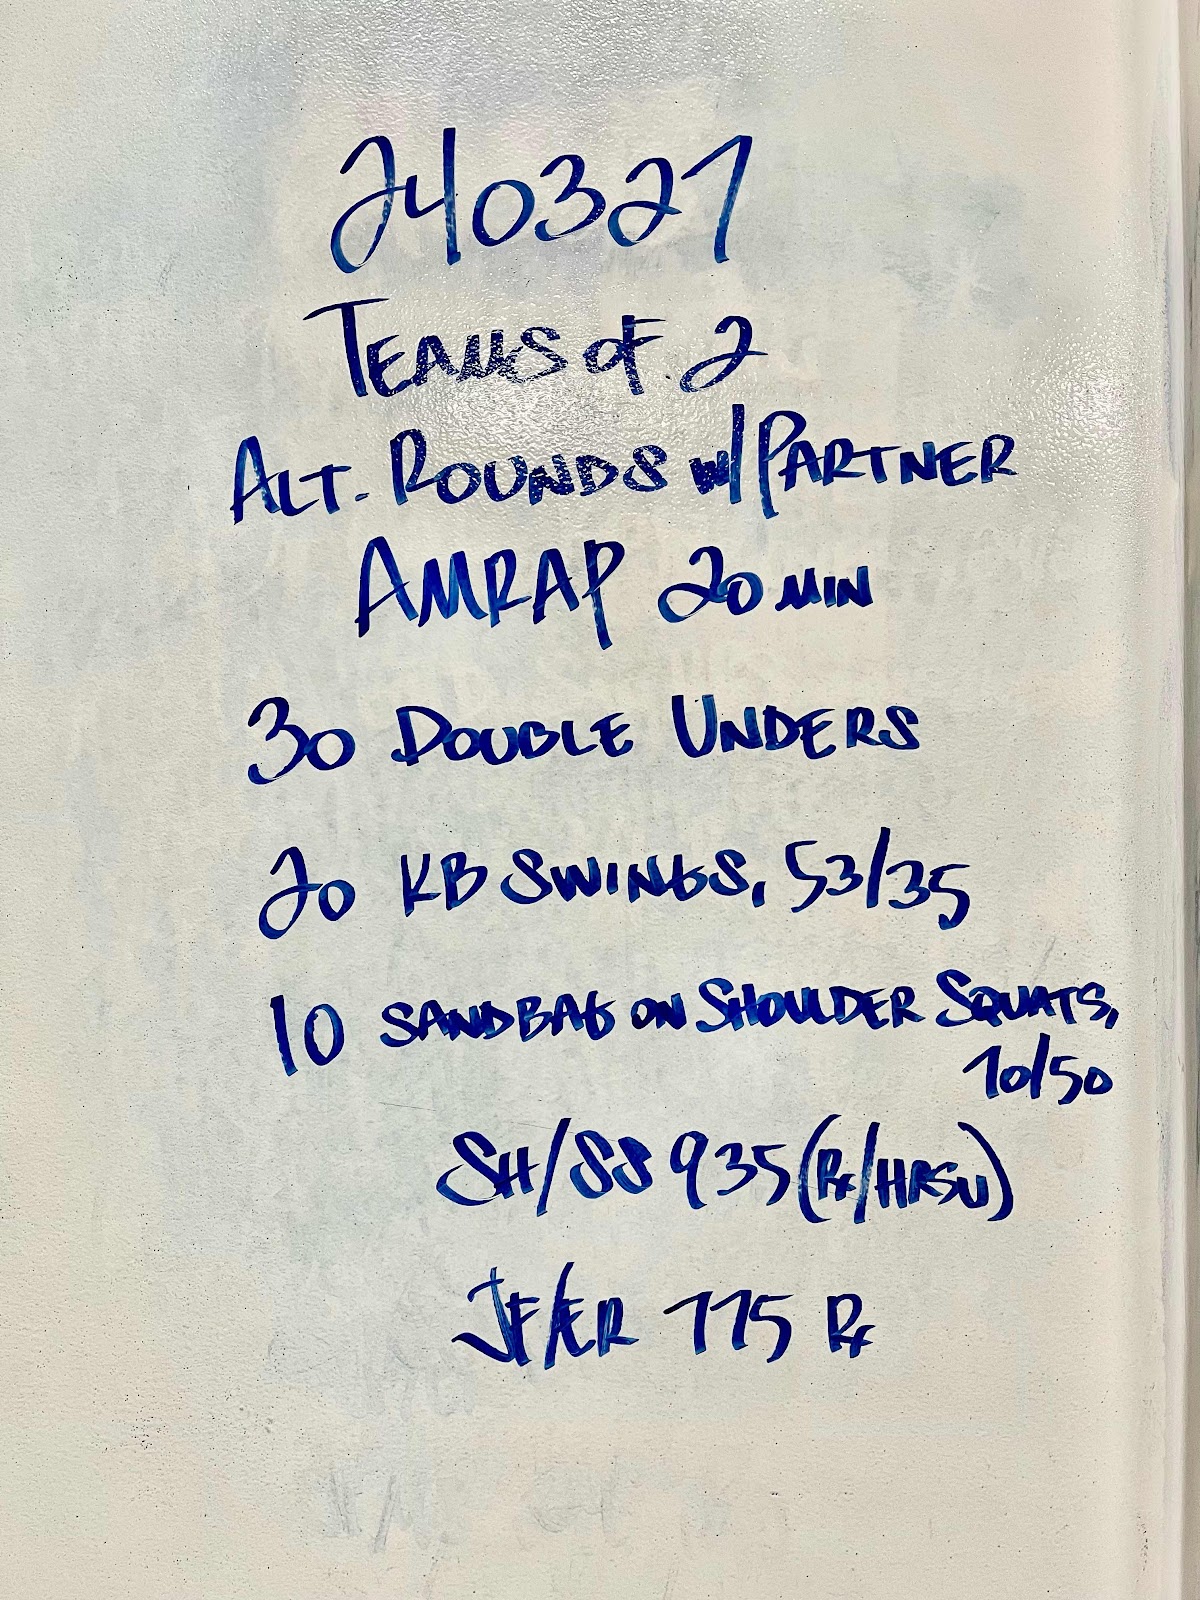 240327
TEAMS OF 2
ALT. ROUNDS W/ PARTNER
AMRAP 20 MIN
30 DOUBLE UNDERS
20 KB SWINGS, 53/35
10 SANDBAG ON SHOULDER SQUATS,
70/50
SH/SS 935 (Rx/HRSU)
JF/ER 775 Rx